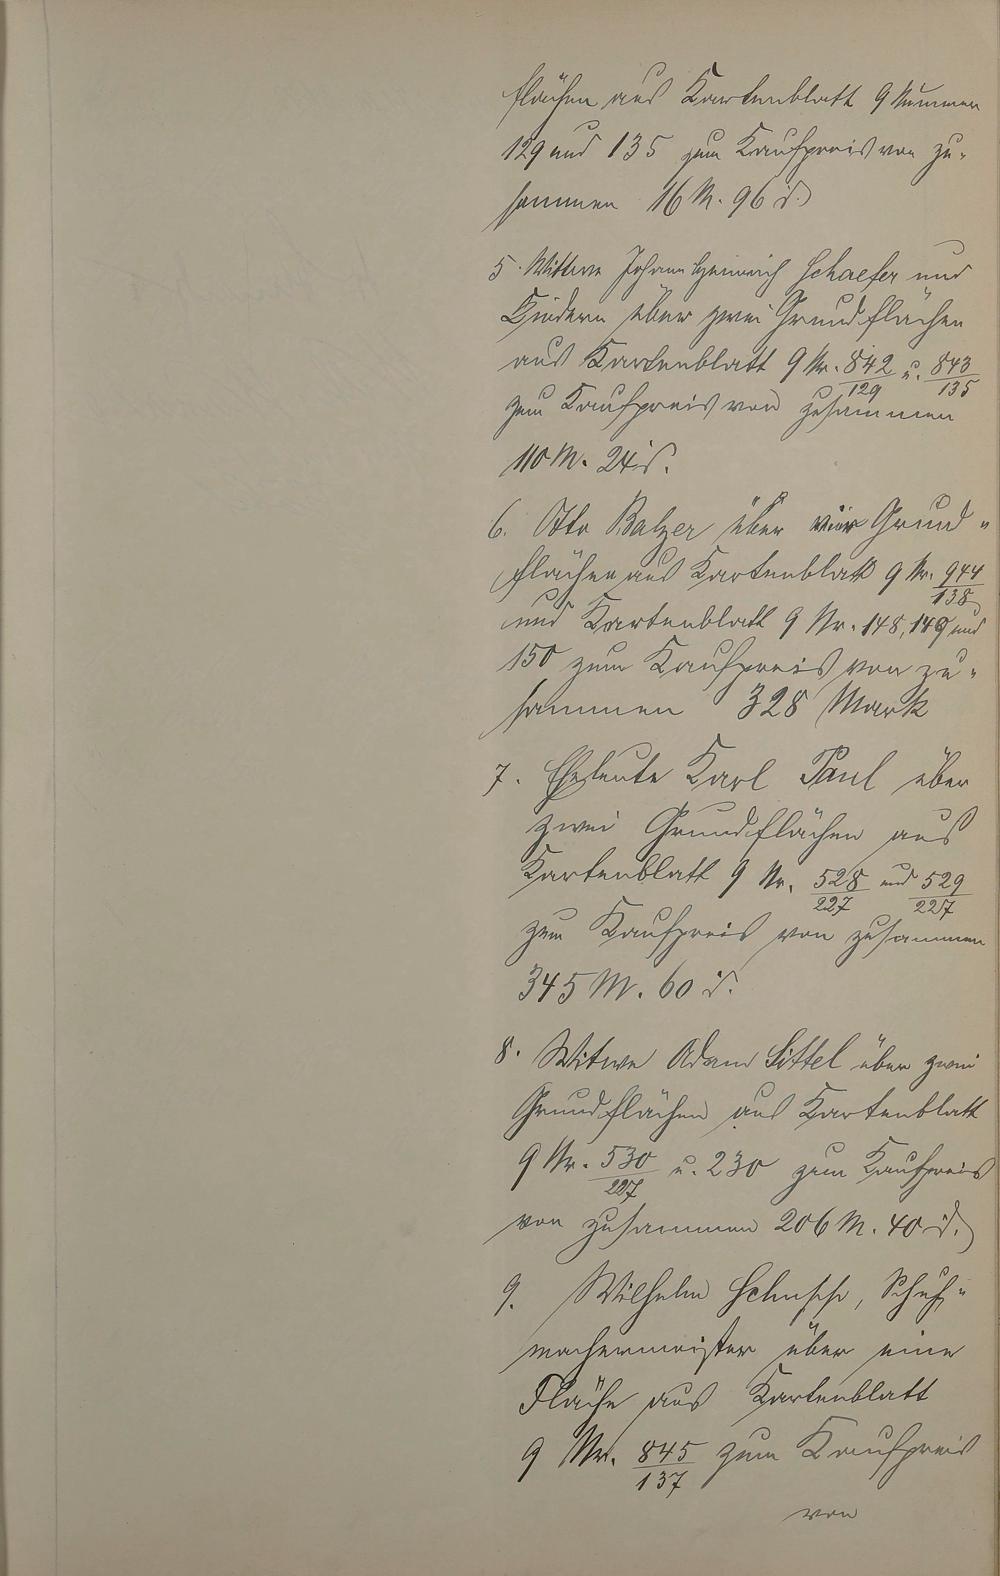 flächen aus Kartenblatt 9 Nummer
129 und 135 zum Kaufpreis von zu-
sammen 16 M. 96 d.
5. Wittwe Johann Heinrich Schaefer und
Kindern über zwei Grundflächen
aus Kartenblatt 9 Nr. 842/129 u. 843/135
zum Kaufpreis von zusammen
110 M. 24 d.
6. Otto Balzer über vier Grund-
flächen aus Kartenblatt 9 Nr. 944/138
und Kartenblatt 9 Nr. 148, 149 und
150 zum Kaufpreis von zu-
sammen 328 Mark
7. Eheleute Karl Paul über
zwei Grundflächen aus
Kartenblatt 9 Nr. 528/227 und 529/227
zum Kaufpreis von zusammen
345 M. 60 d.
8. Witwe Adam Sittel über zwei
Grundflächen aus Kartenblatt
9 Nr. 530/227 u. 230 zum Kaufpreis
von zusammen 206 M. 40 d.
9. Wilhelm, Schuh-
machermeister über eine
Fläche aus Kartenblatt
9 Nr. 845/137 zum Kaufpreis
von